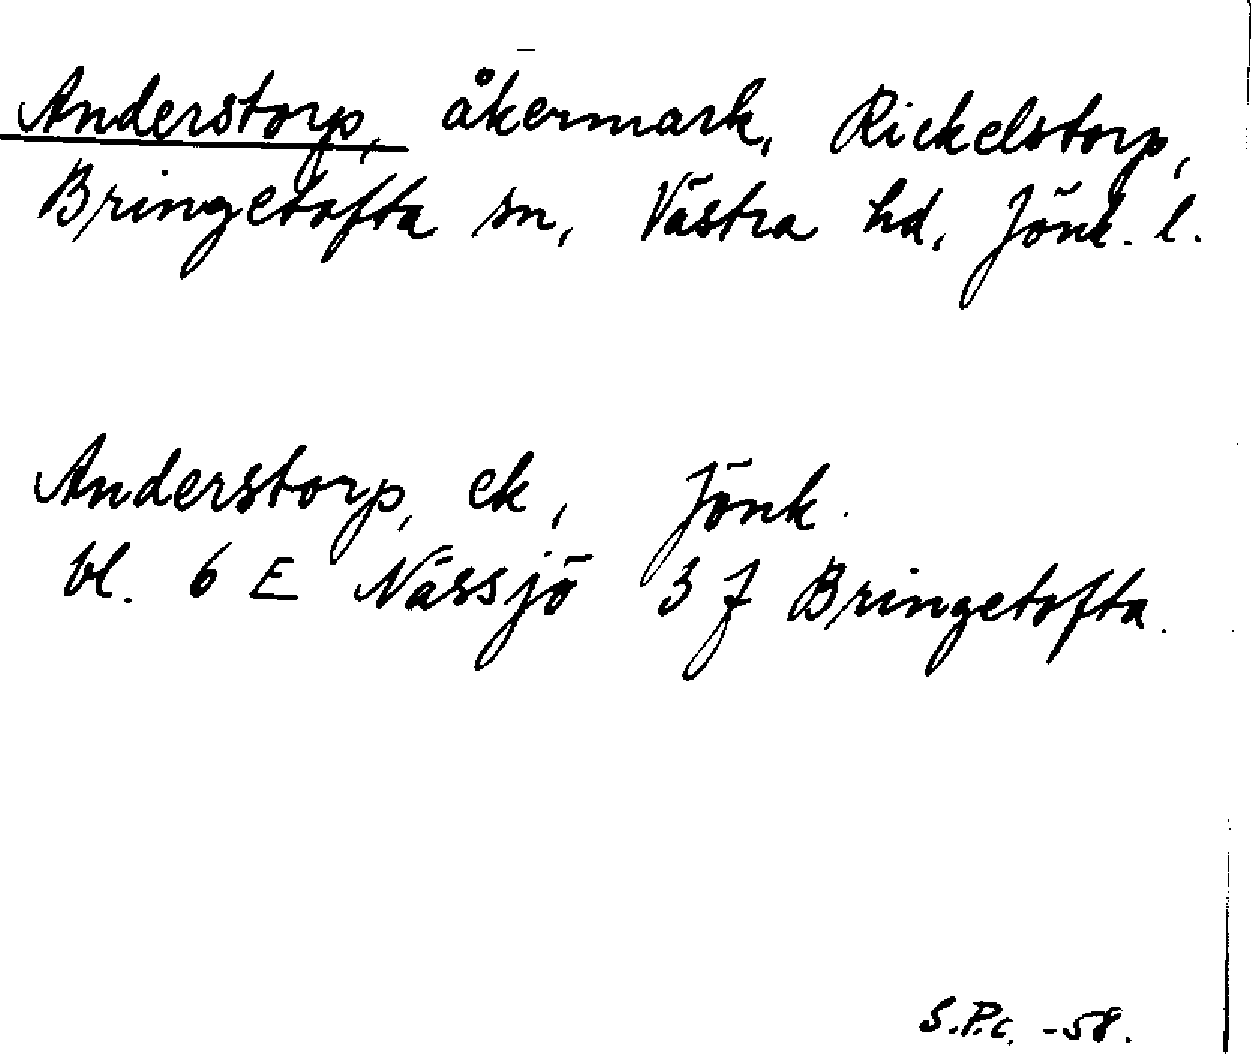 Anderstorp, åkermark, Rickelstorp,
Bringetofta sn, Västra hd, Jönk. l.
Anderstorp, ek, Jönk.
bl. 6 E Nässjö 3 J Bringetofta.
S.P.c. -58.